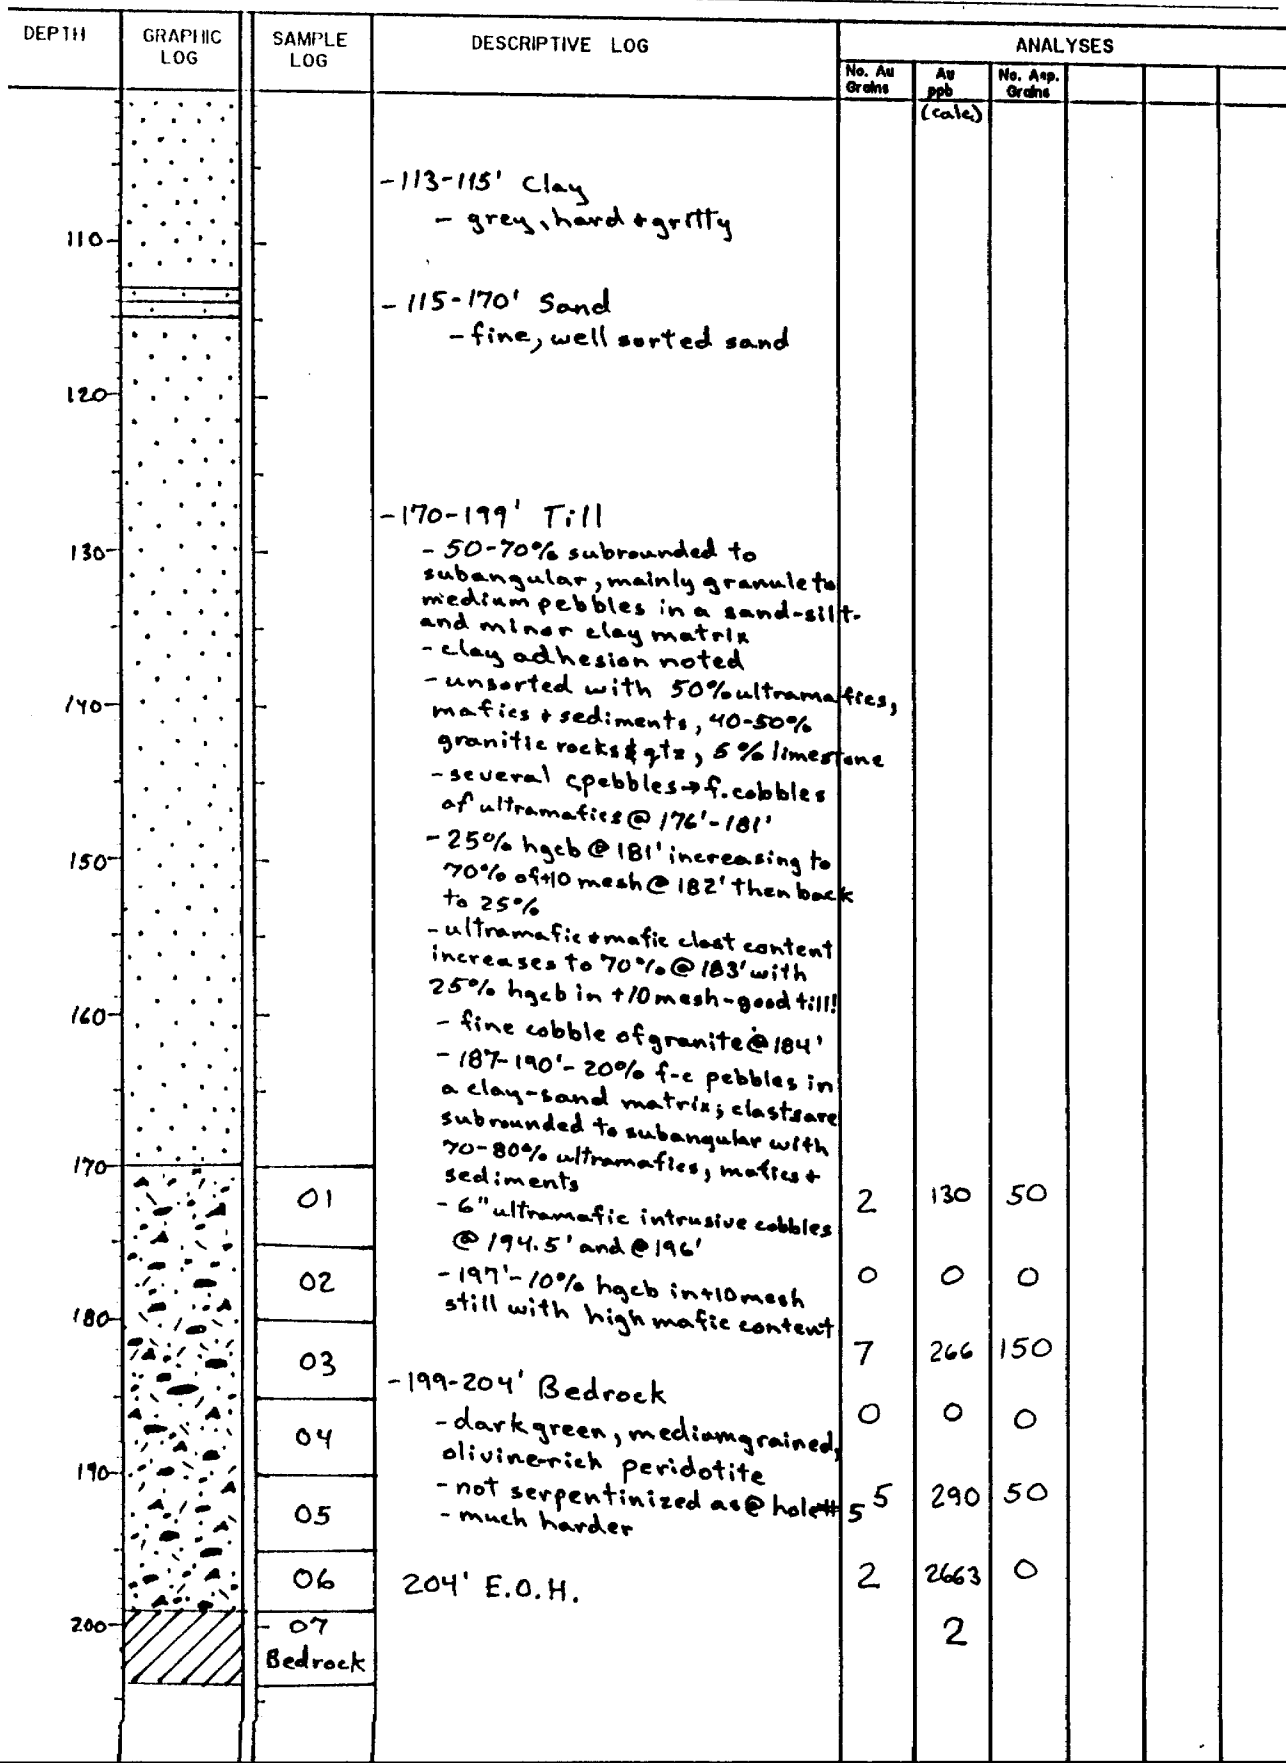 DEPTH GRAPHIC LOG SAMPLE LOG DESCRIPTIVE LOG ANALYSES
No. Au Grains Au ppb No. Asp. Grains
(calc)
-113-115' Clay
- grey, hard + gritty
110
- 115-170' Sand
- fine, well sorted sand
120
-170-199' Till
130
- 50-70% subrounded to
subangular, mainly granule to
medium pebbles in a sand-silt-
and minor clay matrix
- clay adhesion noted
- unsorted with 50% ultramafics,
140
mafics + sediments, 40-50%
granitic rocks & qtz, 5% limestone
- several c pebbles → f. cobbles
of ultramafics @ 176'-181'
150
- 25% hgcb @ 181' increasing to
70% of +10 mesh @ 182' then back
to 25%
- ultramafic + mafic clast content
increases to 70% @ 183' with
25% hgcb in +10 mesh - good till!
160
- fine cobble of granite @ 184'
- 187-190' - 20% f-c pebbles in
a clay-sand matrix; clasts are
subrounded to subangular with
70-80% ultramafics, mafics +
170
sediments
01 2 130 50
- 6" ultramafic intrusive cobbles
@ 194.5' and @ 196'
02 0 0 0
- 197' - 10% hgcb in +10 mesh
still with high mafic content
180
03 7 266 150
-199-204' Bedrock
04 0 0 0
- dark green, medium grained,
olivine-rich peridotite
190
- not serpentinized as @ hole # 5
05 5 290 50
- much harder
06 2 2663 0
204' E.O.H.
200
07 2
Bedrock